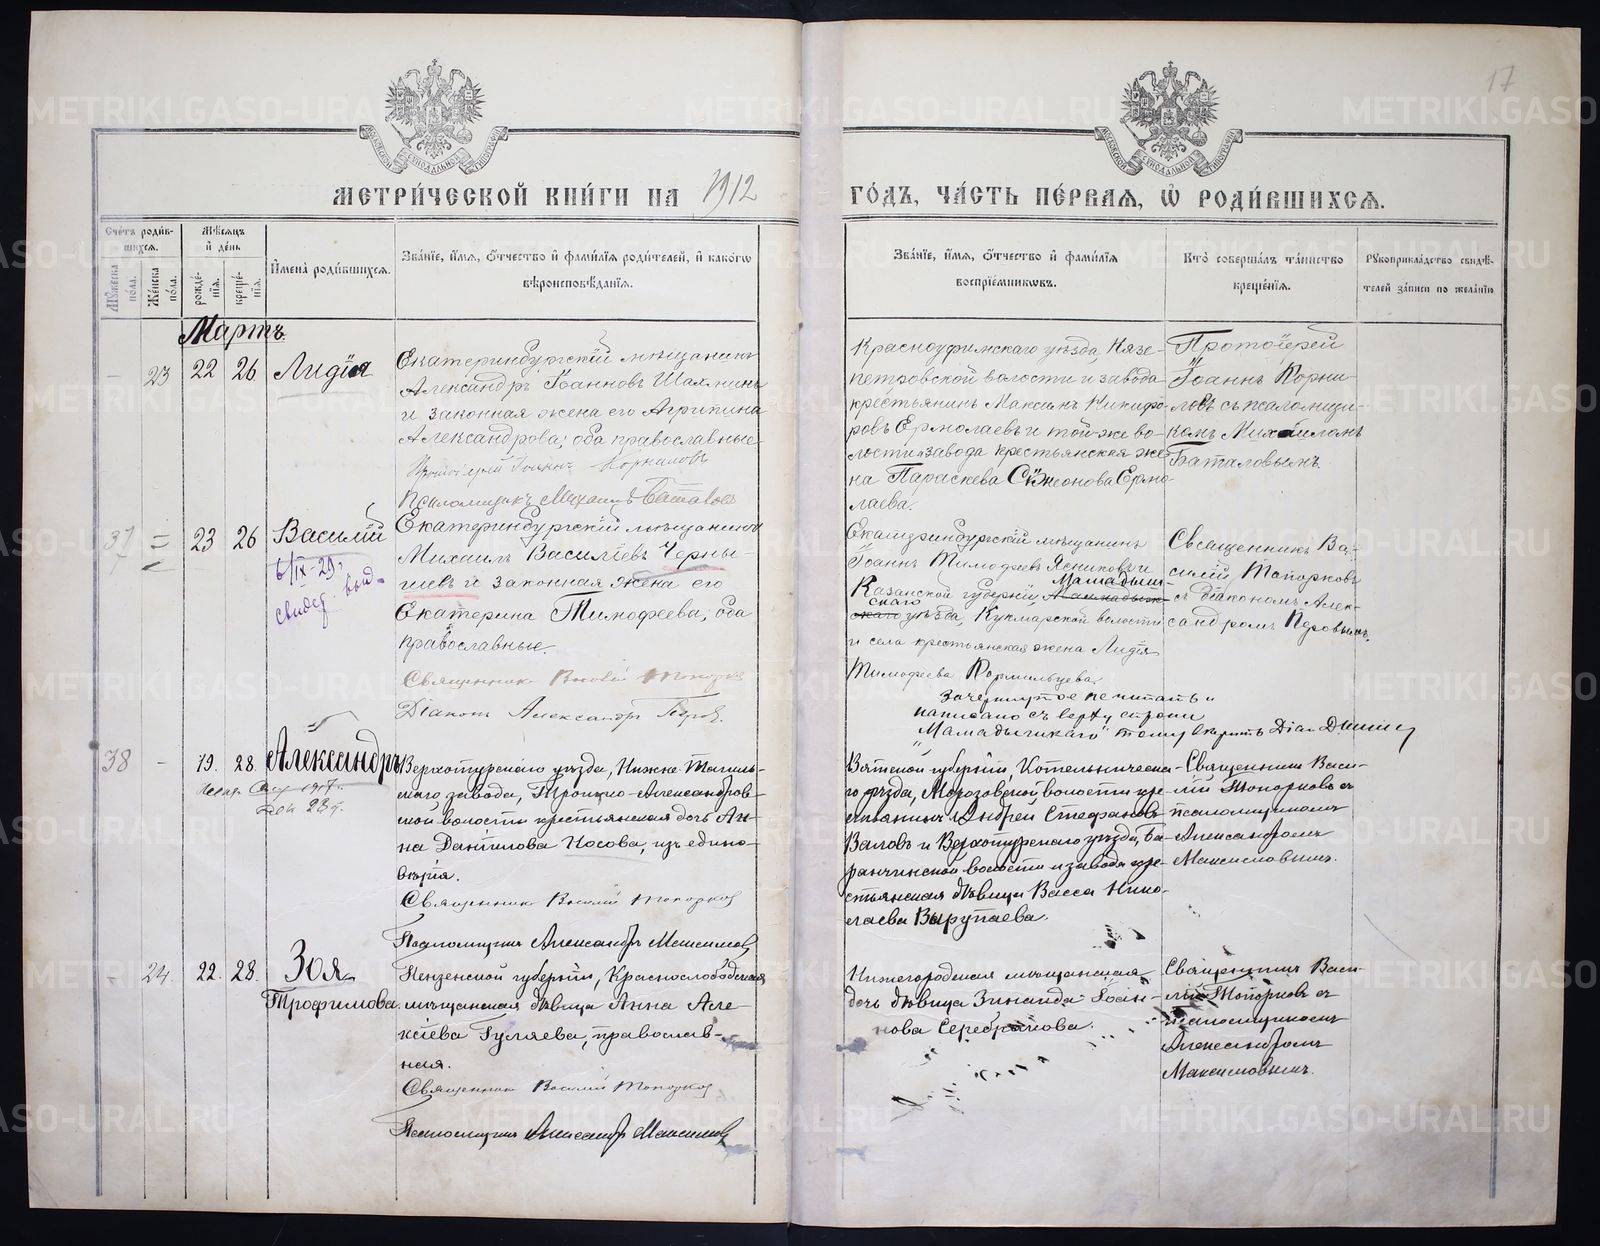 17
МЕТРИ́ЧЕСКОЙ КНИ́ГИ НА 1912 ГО́ДЪ, ЧА́СТЬ ПЕ́РВАЯ, Ѡ РОДИ́ВШИХСЯ.
Сче́тъ роди́вшихся.
Му́жеска по́ла.
Же́нска по́ла.
Мѣ́сяцъ и де́нь
рожде́нія.
креще́нія.
И҆мена̀ роди́вшихся.
Зва́ніе, и҆́мя, ѻ҆́тчество и҆ фами́лія роди́телей, и҆ како́гѡ
вѣроисповѣ́данія.
Зва́ніе, и҆́мя, ѻ҆́тчество и҆ фами́лія
воспріе́мникѡвъ.
Кто̀ соверша́лъ та́инство
креще́нія.
Рꙋкоприкла́дство свидѣ́-
телей за́писи по жела́нію
Мартъ.
- 23 22 26 Лидія
Екатеринбургскій мѣщанинъ
Александръ Іоанновъ Шахминъ
и законная жена его Агрипина
Александрова; оба православные
Протоіерей Іоаннъ Корниловъ
Псаломщикъ Михаилъ Баталовъ
Красноуфимскаго уѣзда, Нязе-
петровской волости и завода
крестьянинъ Максимъ Никифо-
ровъ Ермолаевъ и той-же во-
лости и завода крестьянская же-
на Параскева Сѵмеонова Ермо-
лаева.
Протоіерей
Іоаннъ Корни-
ловъ съ псаломщи-
комъ Михаиломъ
Баталовымъ.
37 = 23 26 Василій
6/IX-29г.
свидѣт. выд.
Екатеринбургскій мѣщанинъ
Михаилъ Василіевъ Черны-
шевъ и законная жена его
Екатерина Тимофеева; оба
православные.
Священник Василій Топорков
Діакон Александръ
Екатеринбургскій мѣщанинъ
Іоаннъ Тимофеевъ Ясниковъ и
Казанской губерніи, Мамадыш-
скаго уѣзда, Кукмарской волости
и села крестьянская жена Лидія
Тимофеева Кормильцева.
Зачеркнутое не читать и
написано съ верху строки
"Мамадышскаго" тому вѣрить Діак.
Священникъ Ва-
силій Топорковъ
съ діакономъ Алек-
сандромъ
38 - 19. 28. Александръ
1917г.
Верхотурскаго уѣзда, Нижне-Тагиль-
скаго завода, Троицко-Александров-
ской волости крестьянская дочь Ан-
на Даніилова Носова, изъ едино-
вѣрія.
Священник Василій Топорков
Псаломщикъ Александръ Максимовъ
Вятской губерніи, Котельническа-
го уѣзда, Морозовской волости кре-
стьянинъ Андрей Стефановъ
Валовъ и Верхотурскаго уѣзда, Ба-
ранчинской волости и завода кре-
стьянская дѣвица Васса Нико-
лаева Вырупаева.
Священникъ Васи-
лій Топорковъ съ
псаломщикомъ
Александромъ
Максимовымъ.
- 24. 22. 28. Зоя
Трофимова.
Пензенской губерніи, Краснослободская
мѣщанская дѣвица Анна Але-
ксіева Гуляева, православ-
ная.
Священник Василій Топорков
Псаломщикъ Александръ Максимовъ
Нижегородская мѣщанская
дочь дѣвица Зинаида Іоан-
нова Серебрякова.
Священникъ Васи-
лій Топорковъ съ
псаломщикомъ
Александромъ
Максимовымъ.
METRIKI.GASO-URAL.RU